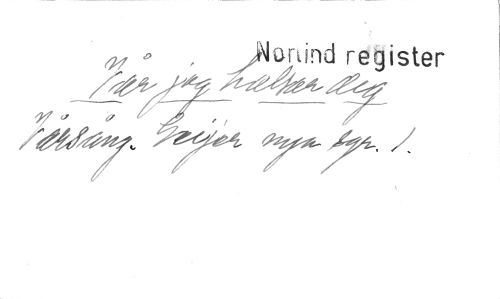 Norlind register
Vår jag helsar dig
Vårsång. Geijer nya sgr. 1.